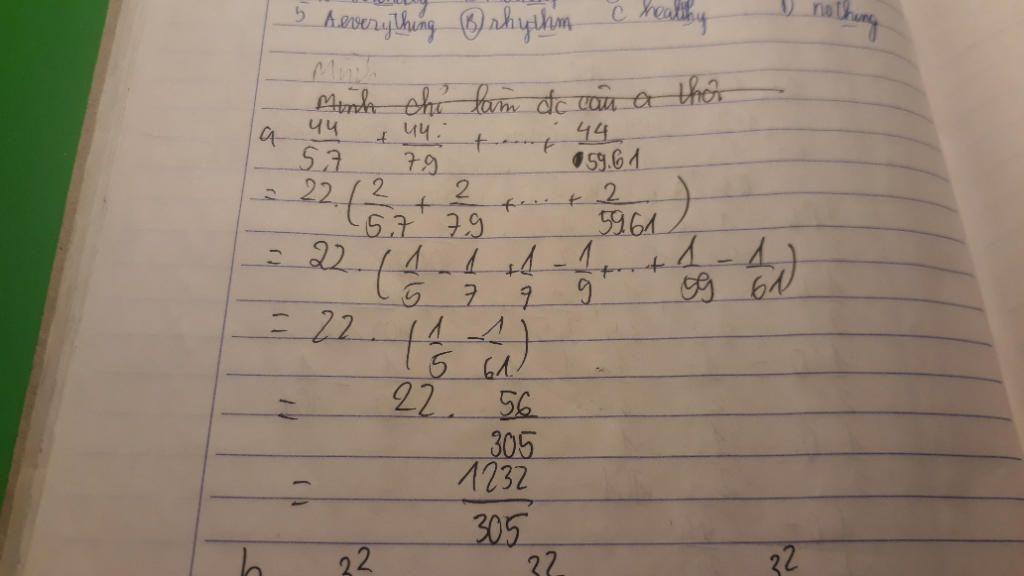 5 A everything (B) rhythm C healthy D nothing
Minh
Mình chỉ làm đc câu a thôi
a 44/5.7 + 44/7.9 + ..... + 44/59.61
= 22.(2/5.7 + 2/7.9 + ... + 2/59.61)
= 22.(1/5 - 1/7 + 1/7 - 1/9 + ... + 1/59 - 1/61)
= 22.(1/5 - 1/61)
= 22. 56/305
= 1232/305
b 3² 3² 3²